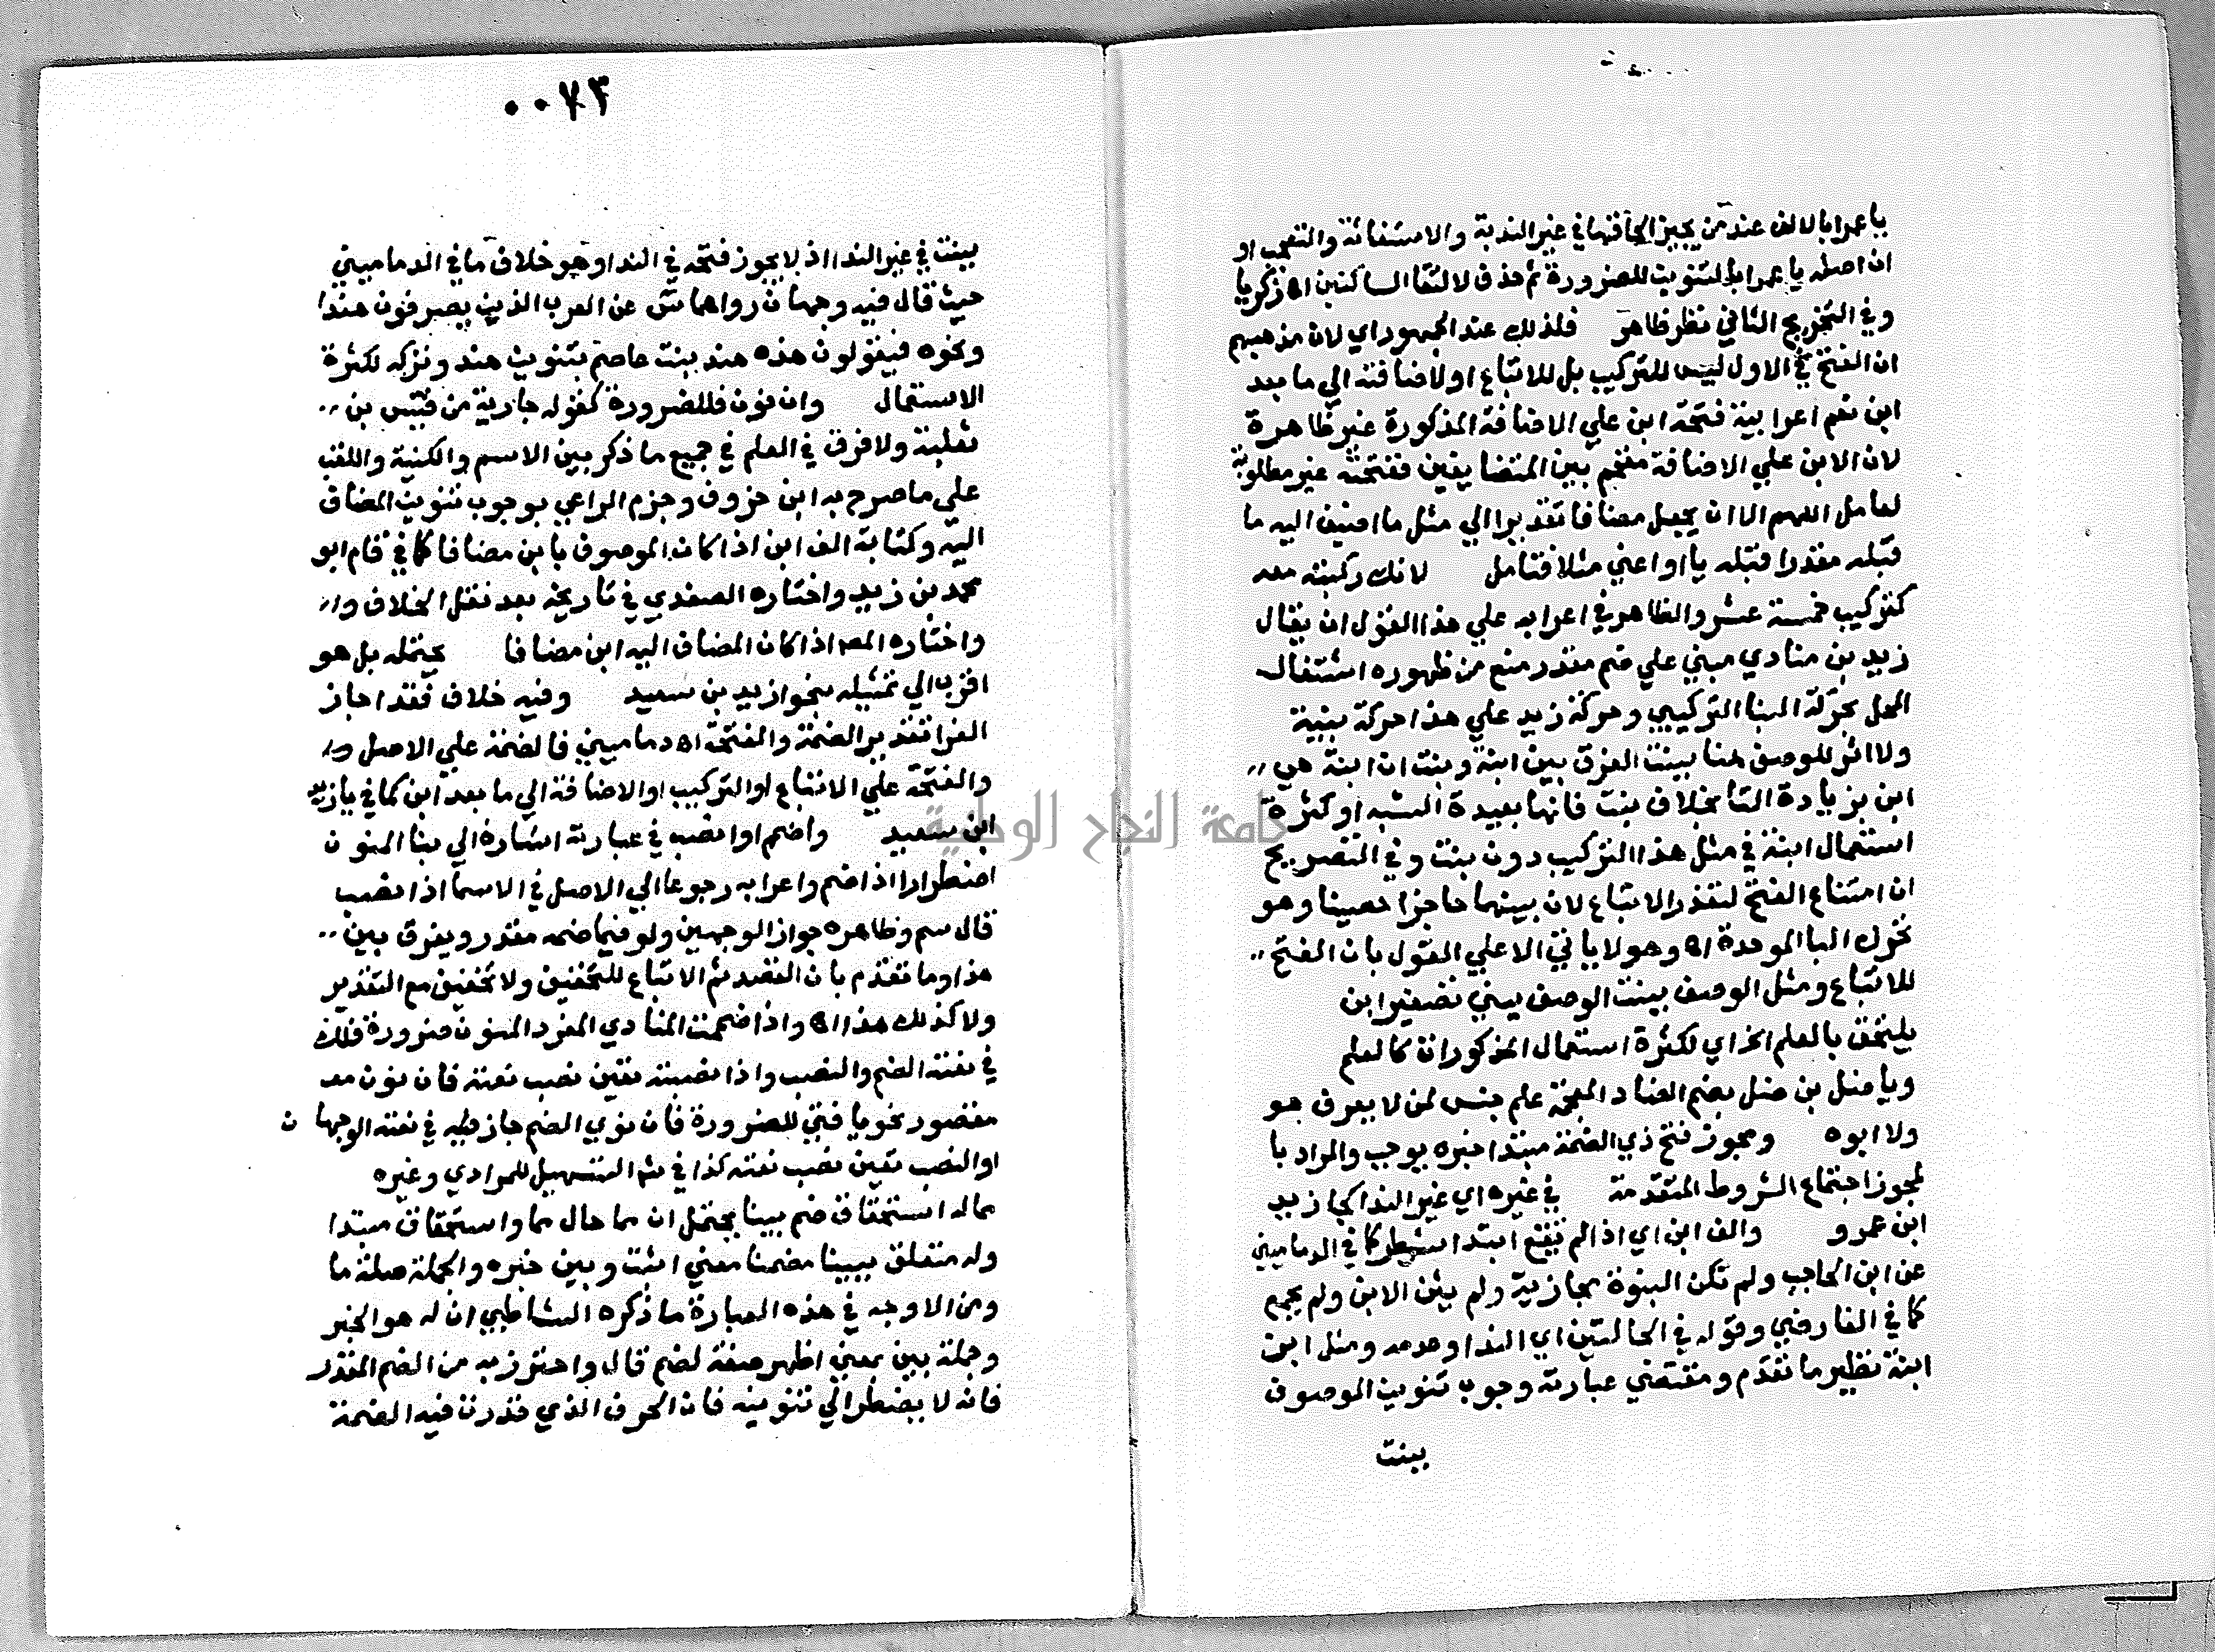 يا عمرا بالالف عند من يجيز الحاقها في غير الندبة والاستغاثة والتعجب او
ان اصله يا عمرا بالتنوين للضرورة ثم حذف لالتقا الساكنين اه زكريا
وفي التخريج الثاني نظر ظاهر فلذلك عند الجمهور اي لان مذهبهم
ان الفتح في الاول ليس للتركيب بل للاتباع او لاضافته الي ما بعد
ابن نعم اعرابية فتحة ابن علي الاضافة المذكورة غير ظاهرة
لان الابن علي الاضافة مقحم بين المتضايفين ففتحته غير مطلوبة
لعامل اللهم الا ان يجعل مضافا تقديرا الي مثل ما اضيف اليه ما
قبله مقدرا قبله يا او اعني مثلا فتامل لانك ركبته معه
كتركيب خمسة عشر والظاهر في اعرابه علي هذا القول ان يقال
زيد بن منادي مبني علي ضم مقدر منع من ظهوره اشتغال
المحل بحركة البنا التركيبي وحركة زيد علي هذا حركة بنية
ولا اثر للوصف هنا ببنت الفرق بين ابنة وبنت ان ابنة هي
ابن بزيادة التا بخلاف بنت فانها بعيدة الشبه او كثرة
استعمال ابنة في مثل هذا التركيب دون بنت وفي التصريح
ان امتناع الفتح لتعذر الاتباع لان بينهما حاجزا حصينا وهو
تحرك البا الموحدة اه وهو لا ياتي الا علي القول بان الفتح
للاتباع ومثل الوصف ببنت الوصف ببني تصغير ابن
يلتحق بالعلم الخ اي لكثرة استعمال المذكورات كالعلم
ويا ضل بن ضل بضم الضاد المعجمة علم جنس لمن لا يعرف هو
ولا ابوه ويجوز فتح ذي الضمة مبتدا خبره يوجب والمراد با
لمجوز اجتماع الشروط المتقدمة في غيره اي غير الندا كجا زيد
ابن عمرو والف ابن اي اذا لم تقع ابتدا سطر كما في الدماميني
عن ابن الحاجب ولم تكن البنوة مجازية ولم يثن الابن ولم يجمع
كما في الفارضي وقوله في الحالتين اي الندا وعدمه ومثل ابن
ابنة نظير ما تقدم ومقتضي عبارته وجوب تنوين الموصوف
ببنت
٠٠٧٣
ببنت في غير الندا اذ لا يجوز فتحه في الندا وهو خلاف ما في الدماميني
حيث قال فيه وجهان رواهما س عن العرب الذين يصرفون هندا
ونحوه فيقولون هذه هند بنت عاصم بتنوين هند وتركه لكثرة
الاستعمال وان نون فللضرورة كقوله جارية من قيس بن
ثعلبة ولا فرق في العلم في جميع ما ذكر بين الاسم والكنية واللقب
علي ما صرح به ابن خروف وجزم الراعي بوجوب تنوين المضاف
اليه وكتابة الف ابن اذا كان الموصوف بابن مضافا كما في قام ابو
محمد بن زيد واختاره الصفدي في تاريخه بعد نقل الخلاف
واختاره المص اذا كان المضاف اليه ابن مضافا يحتمله بل هو
اقرب الي تمثيله بنحو ازيد بن سعيد وفيه خلاف فقد اجاز
الفرا تقدير الضمة والفتحة اه دماميني فالضمة علي الاصل
والفتحة علي الاتباع او التركيب او الاضافة الي ما بعد ابن كما في يا زيد
ابن سعيد واضمم او انصب في عبارته اشارة الي بنا المنون
اضطرارا اذا ضم واعرابه رجوعا الي الاصل في الاسما اذا نصب
قال سم وظاهره جواز الوجهين ولو فيما ضمه مقدر ويفرق بين
هذا وما تقدم بان القصد ثم الاتباع للتخفيف ولا تخفيف مع التقدير
ولا كذلك هذا اه واذا ضممت المنادي المفرد المنون ضرورة فلك
في نعته الضم والنصب واذا نصبته تعين نصب نعته فان نون معه
مقصور نحو يا فتي للضرورة فان نوي الضم جاز في نعته الوجهان
او النصب تعين نصب نعته كذا في شم التسهيل للمرادي وغيره
مما له استحقاق ضم بينا يحتمل ان مما حال من ما واستحقاق مبتدا
وله متعلق ببينا مضمنا معني اثبت وبين خبره والجملة صلة ما
ومن الاوجه في هذه العبارة ما ذكره الشاطبي ان له هو الخبر
وجملة بين بمعني اظهر صفة لضم قال واحترز به من الضم المقدر
فانه لا يضطر الي تنوينه فان الحرف الذي قدرت فيه الضمة
جامعة النجاح الوطنية